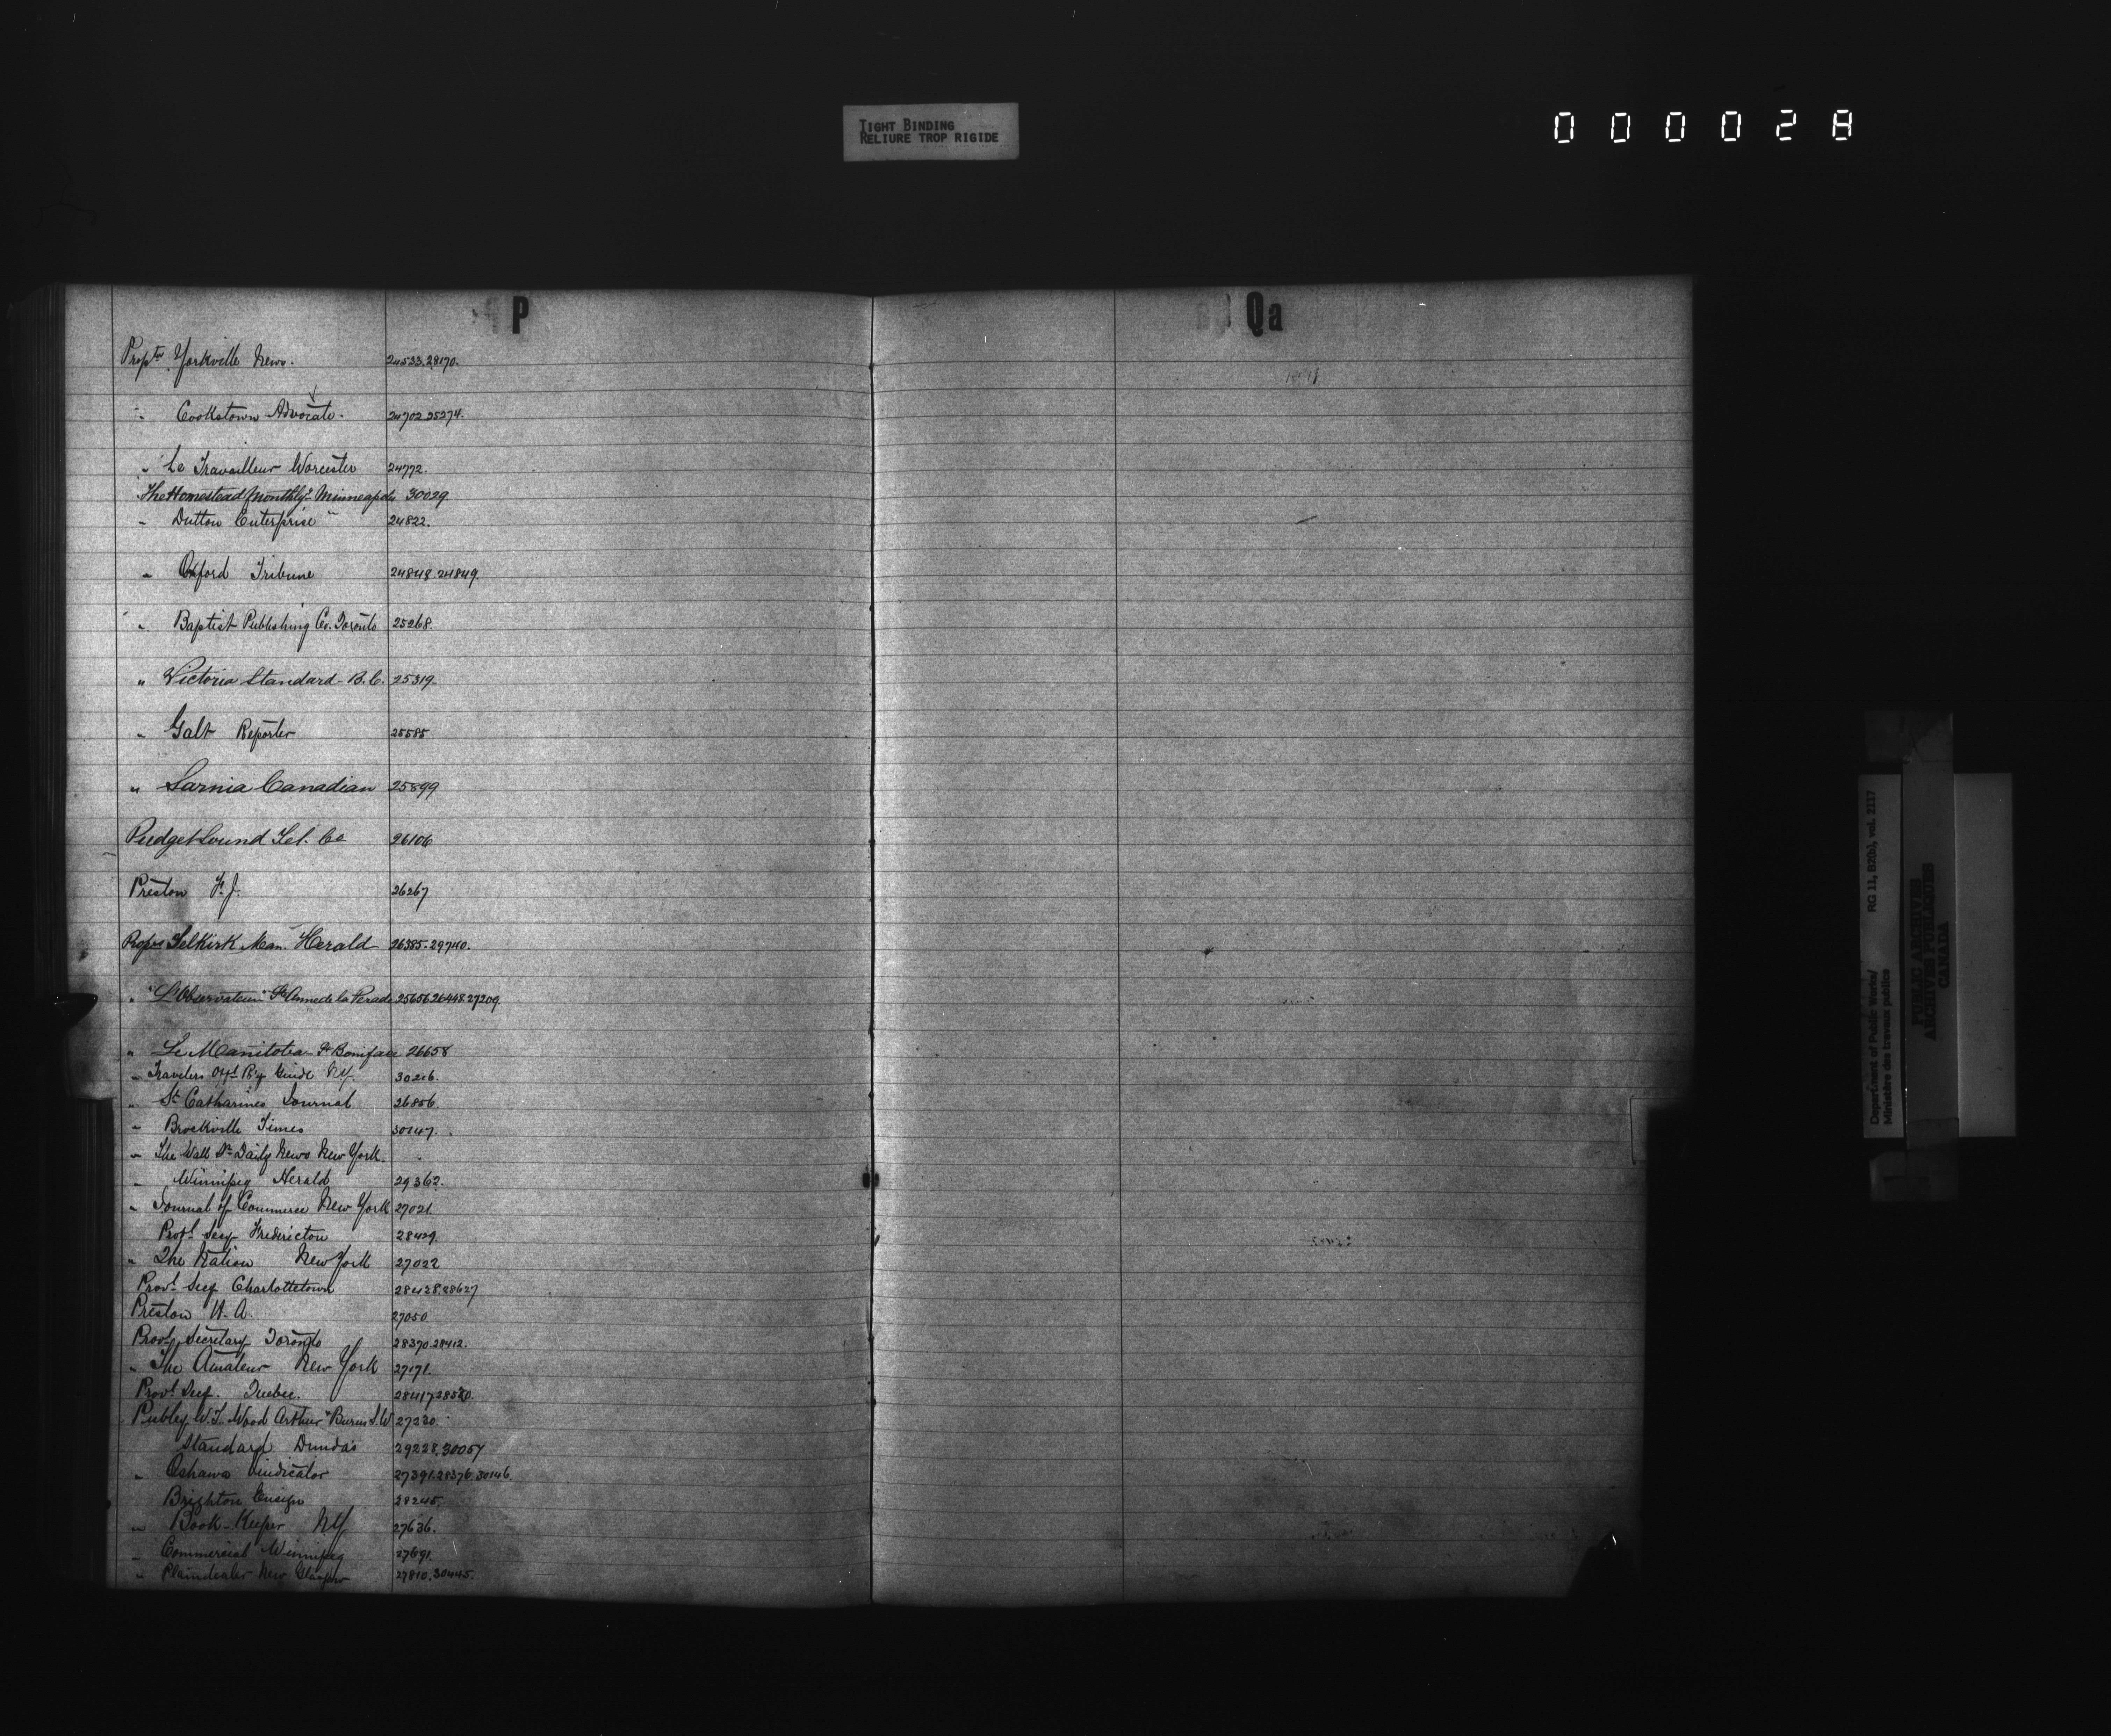 TIGHT BINDING
RELIURE TROP RIGIDE
000028
P
Qa
Proptr Yorkville News. 24533.28170.
" Cookstown Advocate. 24702 25274.
" Le Travailleur Worcester 24772.
"The Homestead Monthly" Minneapolis 30029.
" Dutton Enterprise 24822.
" Oxford Tribune 24848.24849.
" Baptist Publishing Co. Toronto 25268.
" Victoria Standard B.C. 25319.
" Galt Reporter 25585
" Sarnia Canadian 25899
Pudget Sound Tel. Co 26106
Preston F.J. 26267
Proprs Selkirk Man. Herald 26385.29740.
" "L'Observateur" Ste Anne de la Perade 25656.26448.27209.
" Le Manitoba St Boniface 26658
" Travelers Offl Ry Guide N.Y. 30216.
" St Catharines Journal 26856.
" Brockville Times 30147.
" The Wall St Daily News New York.
" Winnipeg Herald 29362.
" Journal of Commerce New York 27021.
Provl Secy Fredericton 28429.
" The Nation New York 27022
Provl Secy Charlottetown 28428.28627
Preston W.A. 27050
Provl Secretary Toronto 28370.28412.
" The Amateur New York 27171.
Provl Secy. Quebec. 28417.28580.
W.T. Wood Arthur 27230.
Standard Dundas 29228.30057
" Oshawa Vindicator 27391.28376.30146.
Brighton Ensign 28245.
" Book-Keeper N.Y. 27636.
" Commercial Winnipeg 27691.
" Plaindealer New Glasgow 27810.30445.
Department of Public Works/
Ministère des travaux publics
RG 11, B2(b), vol. 2117
PUBLIC ARCHIVES
ARCHIVES PUBLIQUES
CANADA